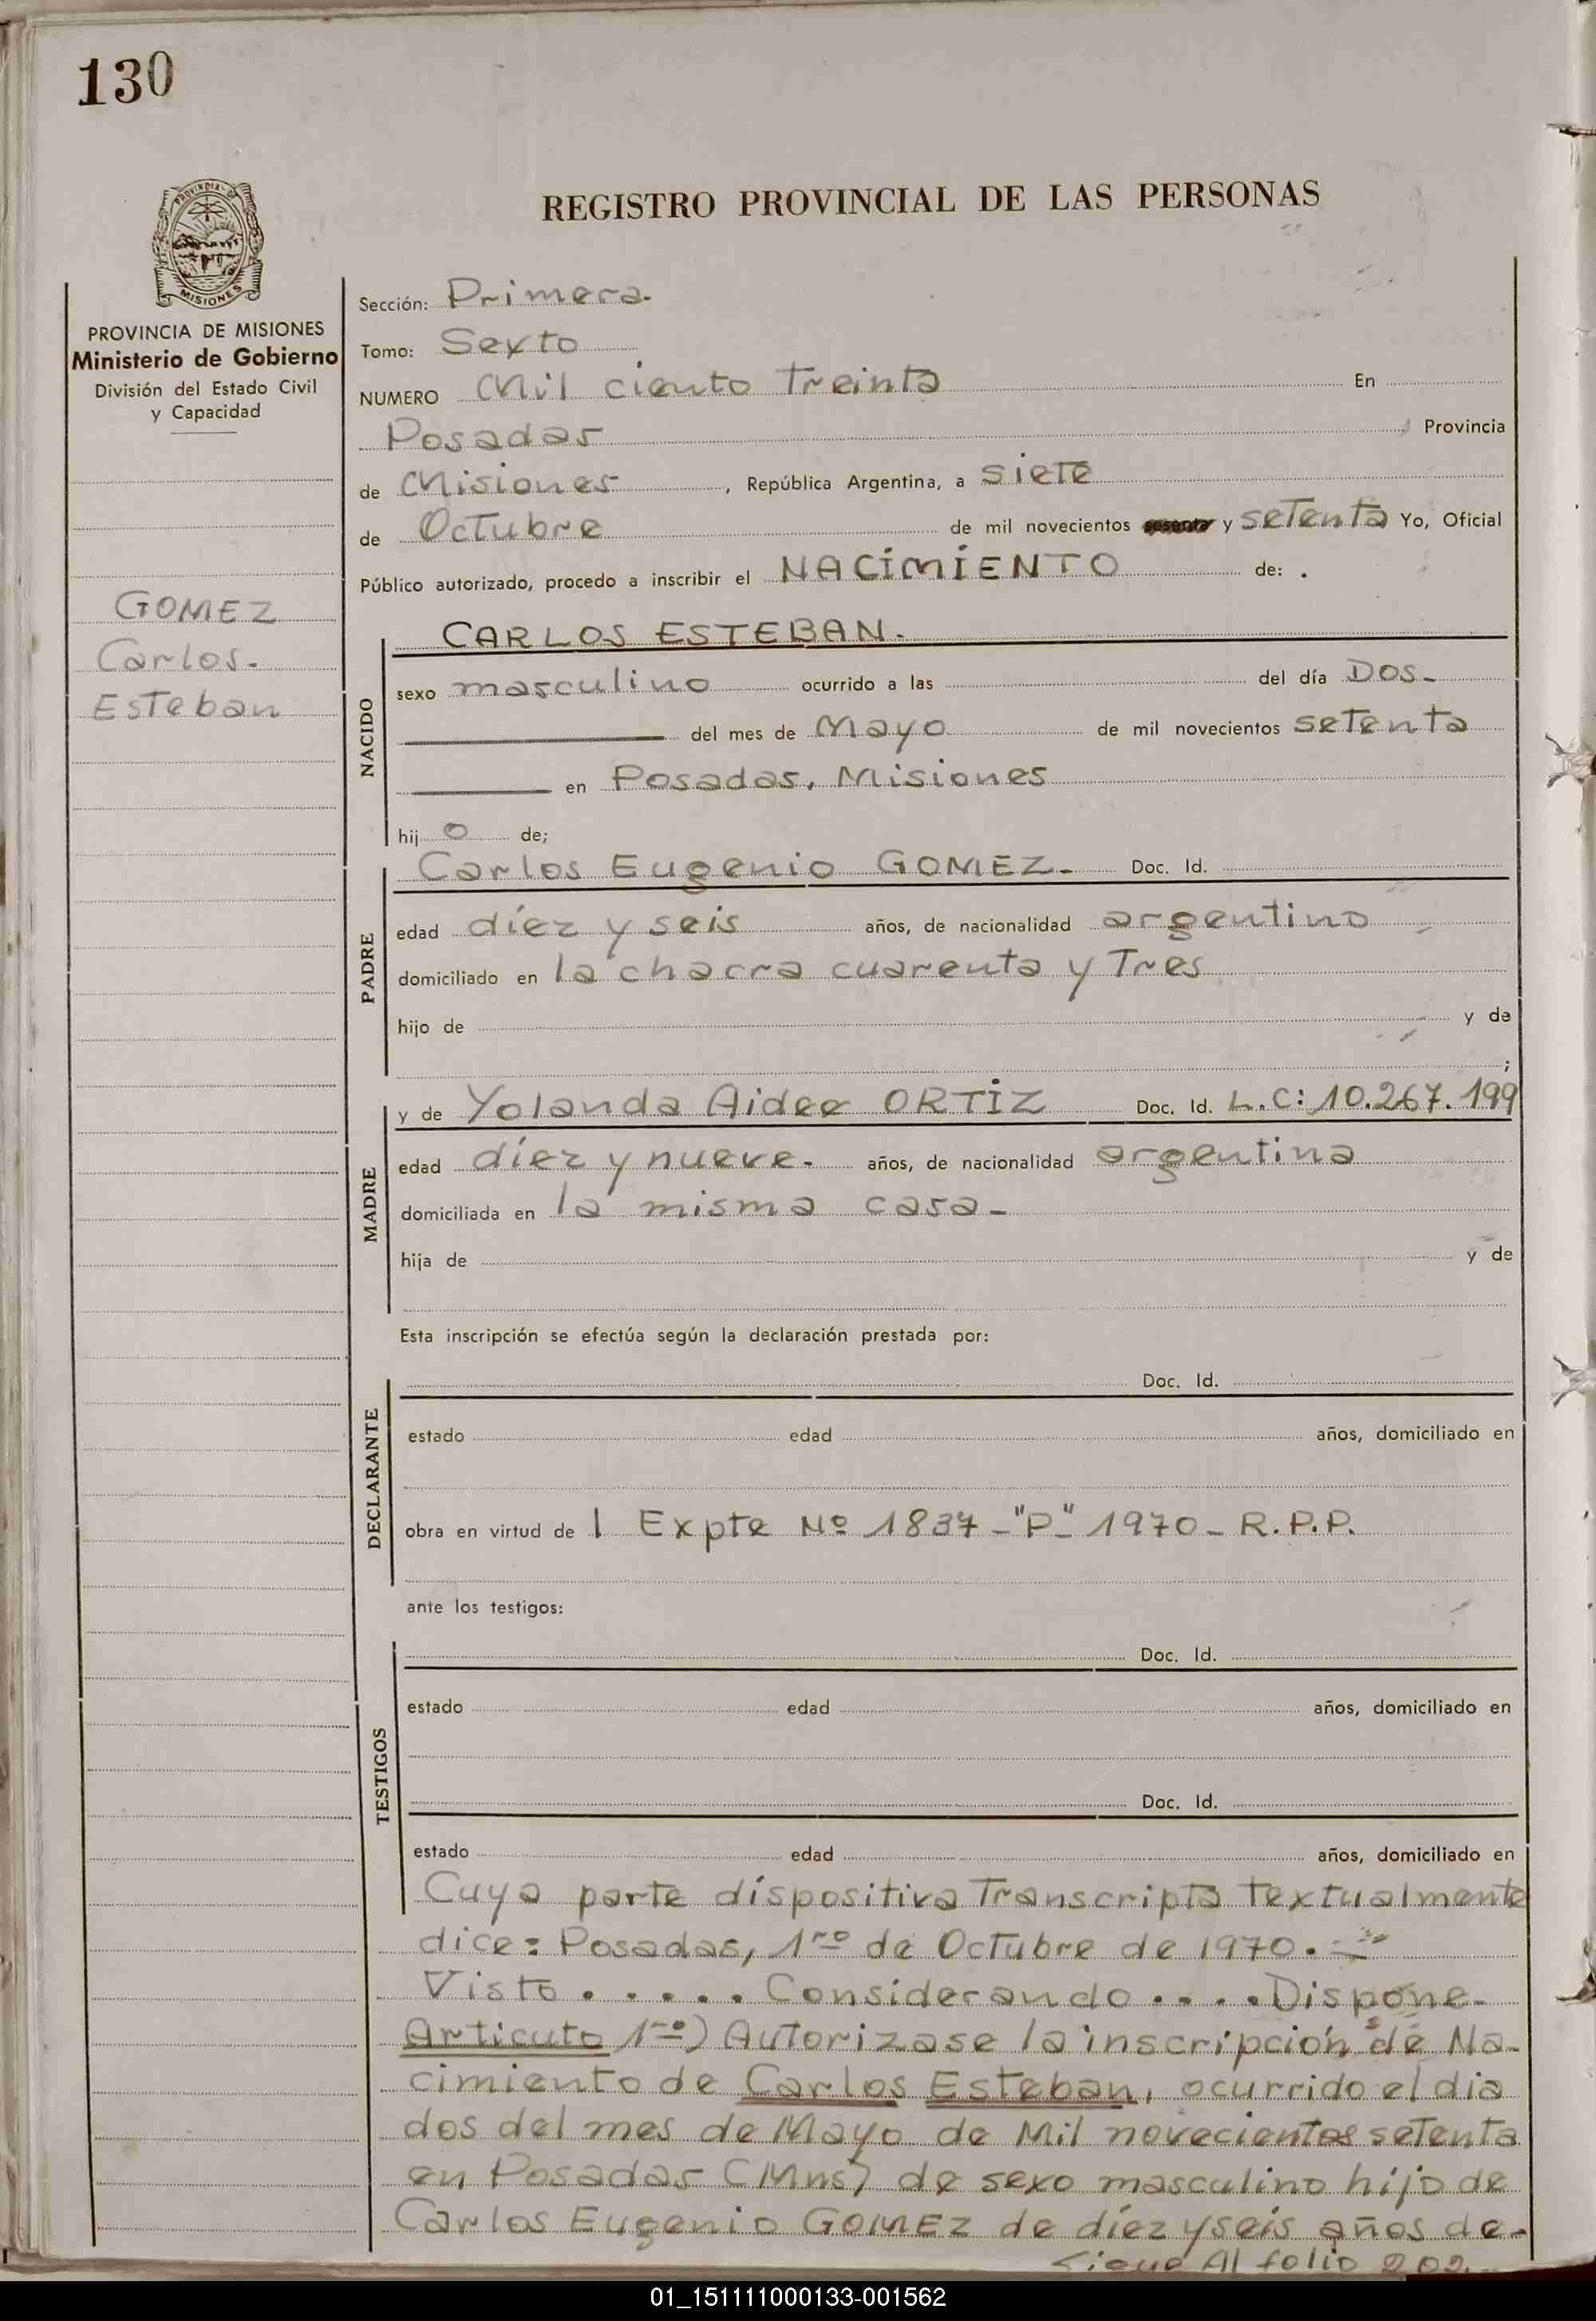 130
REGISTRO PROVINCIAL DE LAS PERSONAS
PROVINCIA DE MISIONES
Ministerio de Gobierno
División del Estado Civil
y Capacidad
GOMEZ
Carlos.
Esteban
Sección: Primera.
Tomo: Sexto
NUMERO Mil ciento Treinta En
Posadas Provincia
de Misiones, República Argentina, a siete
de Octubre de mil novecientos sesenta y setenta Yo, Oficial
Público autorizado, procedo a inscribir el NACIMIENTO de: .
NACIDO
CARLOS ESTEBAN.
sexo masculino ocurrido a las del día Dos-
del mes de Mayo de mil novecientos setenta
en Posadas, Misiones
hijo de;
PADRE
Carlos Eugenio GOMEZ.- Doc. Id.
edad díez y seis años, de nacionalidad argentino
domiciliado en la chacra cuarenta y Tres
hijo de y de
;
MADRE
y de Yolanda Aidee ORTIZ Doc. Id. L.C: 10.267.199
edad díez y nueve. años, de nacionalidad argentina
domiciliada en la misma casa-
hija de y de
Esta inscripción se efectúa según la declaración prestada por:
DECLARANTE
Doc. Id.
estado edad años, domiciliado en
obra en virtud de l Expte Nº 1837-"P"-1970- R.P.P.
ante los testigos:
TESTIGOS
Doc. Id.
estado edad años, domiciliado en
Doc. Id.
estado edad años, domiciliado en
Cuya parte díspositiva Transcripta Textualmente
dice: Posadas, 1ro de Octubre de 1970.-
Visto . . . . . Considerando . . . . Dispone-
Articuto 1ro) Autorizase la inscripción de Na-
cimiento de Carlos Esteban, ocurrido el dia
dos del mes de Mayo de Mil novecientos setenta
en Posadas (Mns) de sexo masculino hijo de
Carlos Eugenio GOMEZ de díez y seis años de-
Sigue Al folio 202.-
01_151111000133-001562